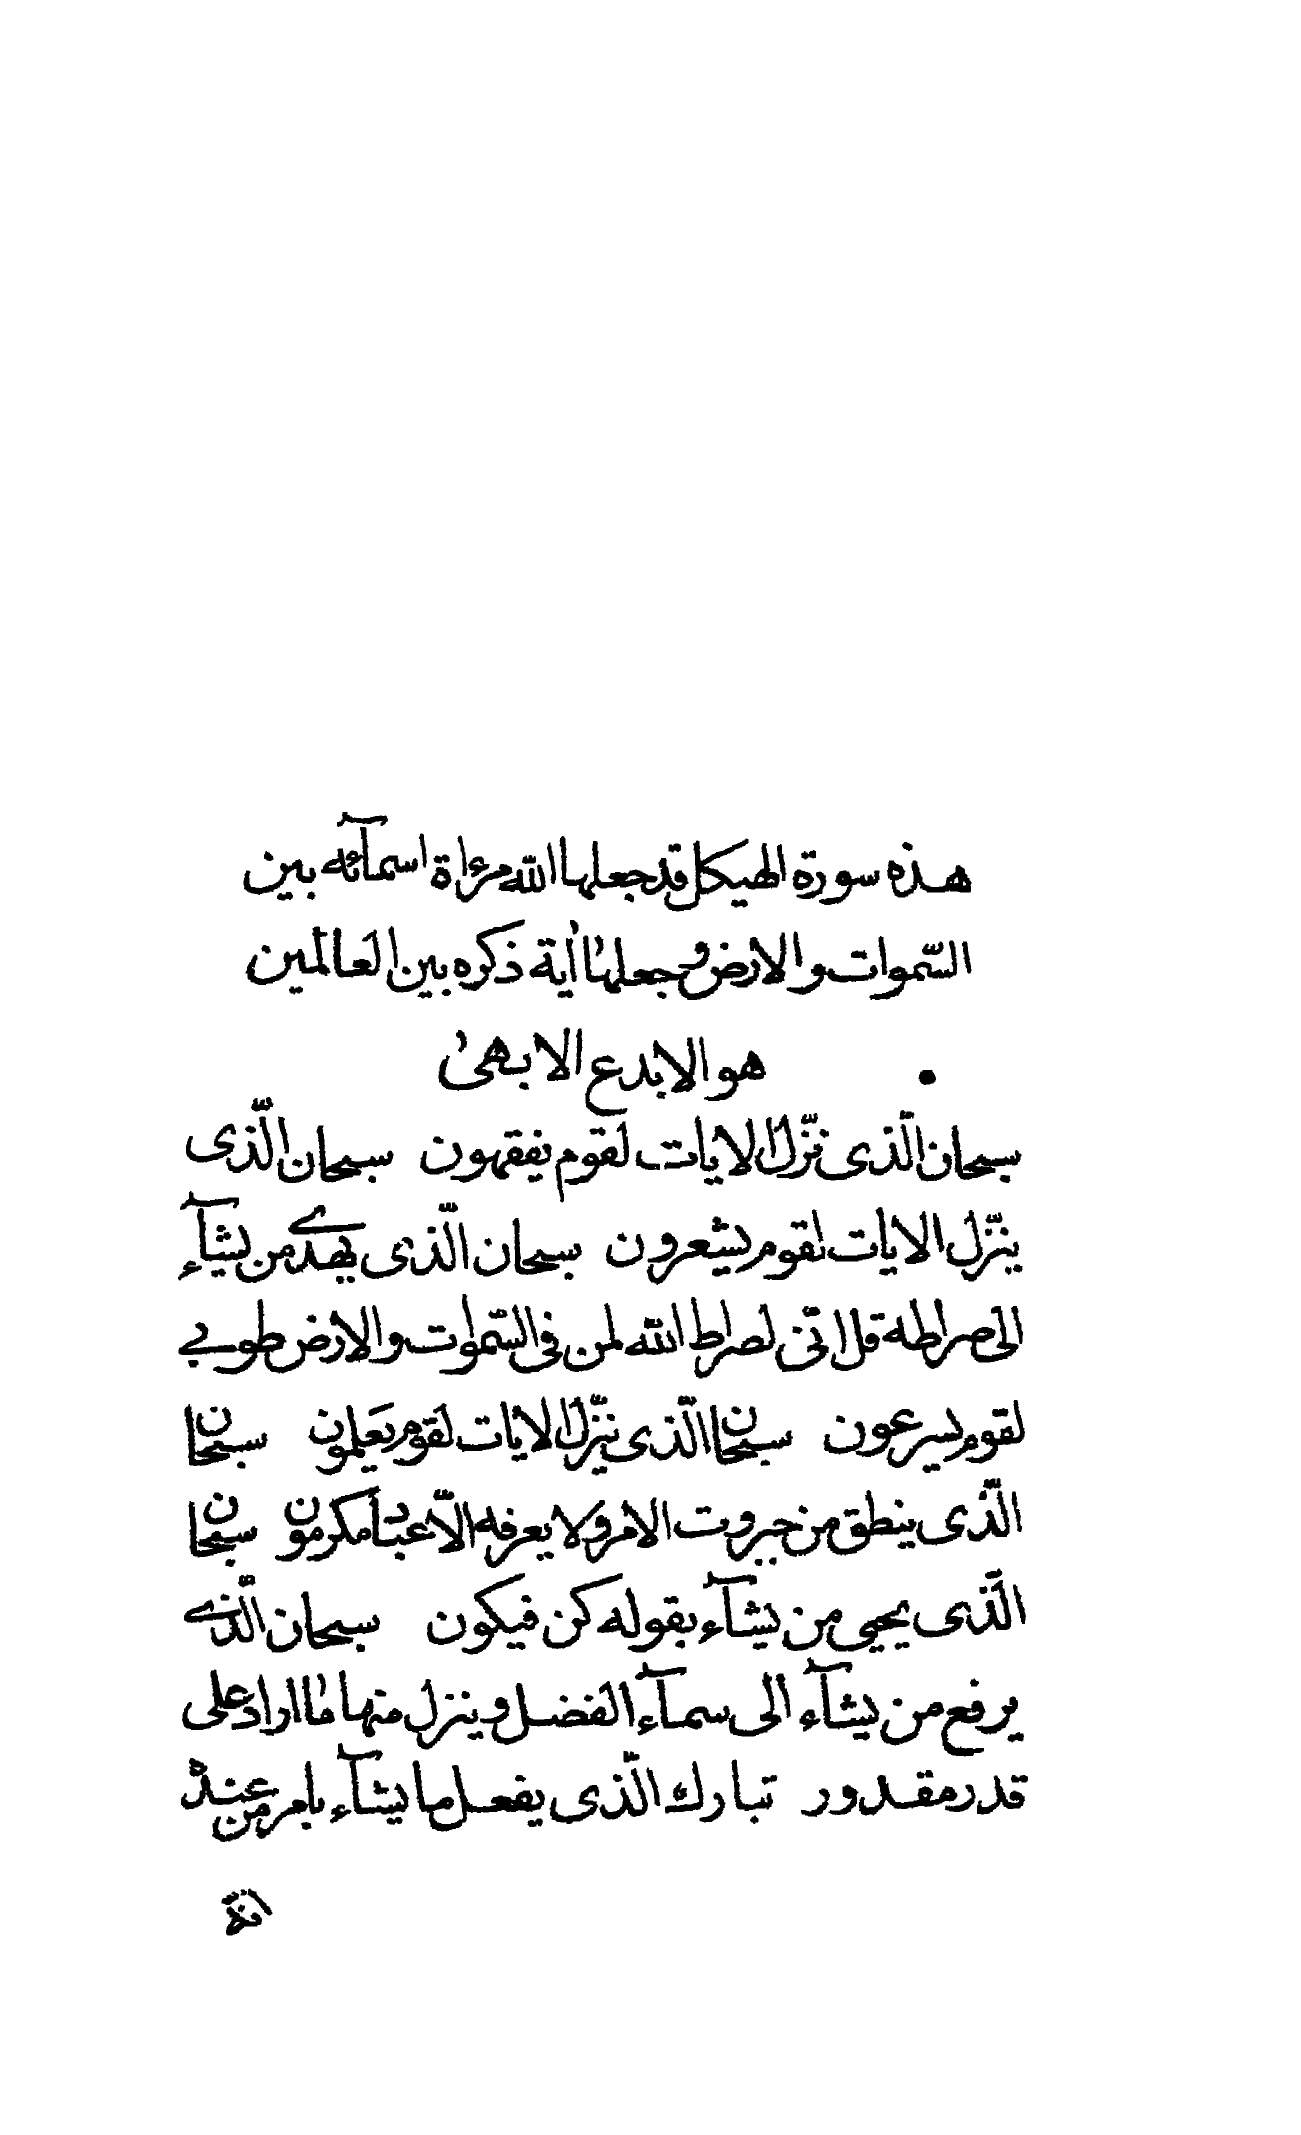 هذه سورة الهيكل قد جعلها الله مرءاة اسمآئه بين
السّموات والارض وجعلها اٰية ذكره بين العالمين
هو الابدع الابهىٰ
سبحان الّذى نزّل الايات لقوم يفقهون سبحان الّذى
ينزّل الايات لقوم يشعرون سبحان الّذى يهدے من يشآء
الى صراطه قل انّنى لصراط الله لمن فى السّموات والارض طوبے
لقوم يسرعون سبحان الّذى ينزّل الايات لقوم يعلمون سبحان
الّذى ينطق من جبروت الامر ولا يعرفه الّا عباد مكرمون سبحان
الّذى يحيى من يشآء بقوله كن فيكون سبحان الّذے
يرفع من يشآء الى سمآء الفضل وينزل منها ما اراد على
قدر مقدور تبارك الّذى يفعل ما يشآء بامر من عنده
انّه